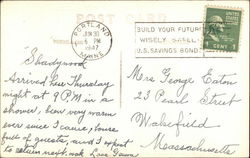 POST CARD
PORTLAND
MAINE
5 PM
1947
BUILD YOUR FUTURE
WISELY SAFELY
U.S. SAVINGS BONDS
1 CENT 1
Shadynook
Arrived here Thursday
night at 9 P.M. in a
shower, been very warm
ever since I came, house
full of guests, and I expect
to return next wk Love
Mrs George Eaton
23 Pearl Street
Wakefield
Massachusetts